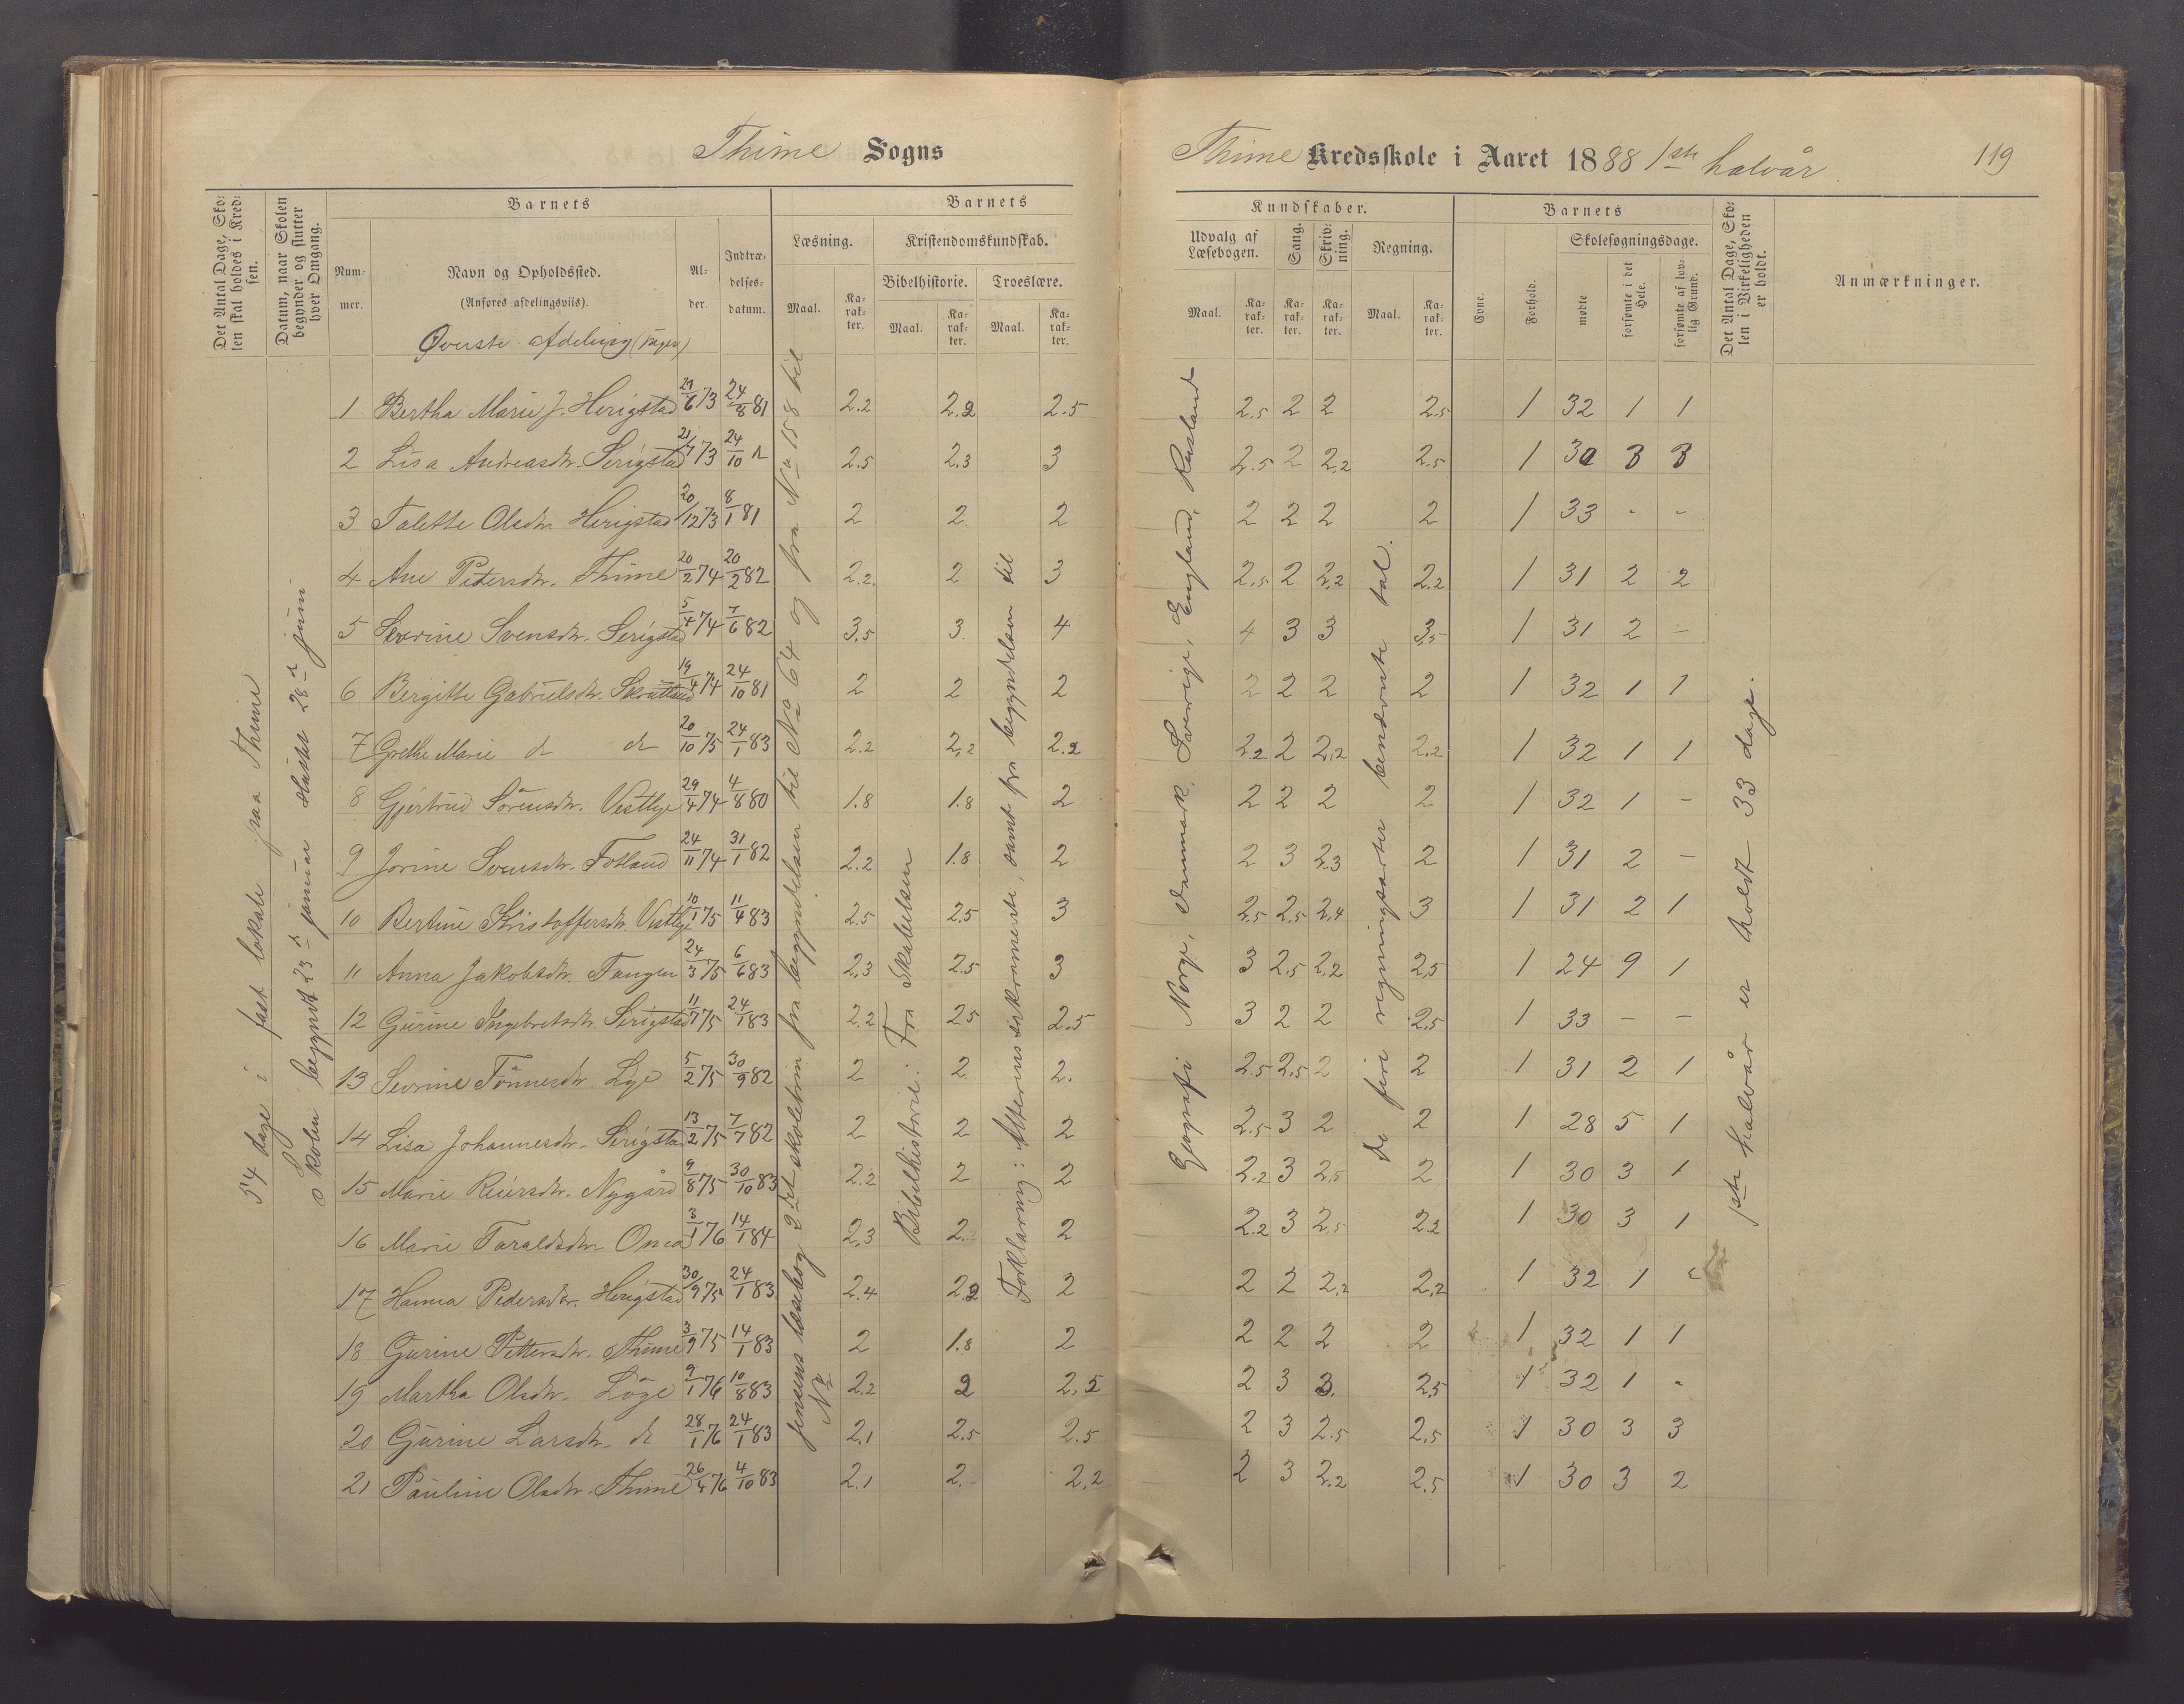 Thime Sogns
Det Antal Dage, Sko-
len skal holdes i Kred-
sen.
Datum, naar Skolen
begynder og slutter
hver Omgang.
Barnets
Num-
mer.
Navn og Opholdssted.
(Anføres afdelingsviis).
Øverste afdeling (piger)
Al-
der.
Indtræ-
delses-
datum.
Barnets
Læsning.
Maal.
Ka-
rak-
ter.
Kristendomskundskab.
Bibelhistorie.
Maal.
Ka-
rak-
ter.
Troeslære.
Maal.
Ka-
rak-
ter.
54 dage i fast lokale paa Thime
Skolen begyndt 23de januar sluttet 28de juni
1 Bertha Marie J. Herigstad 29/6 73 24/8 81 2.2 2.2 2.5
2 Lisa Andreasdtr. Serigstad 21/7 73 24/10 2.5 2.3 3
3 Talette Olsdtr. Herigstad 20/12 73 8/1 81 2 2 2
4 Ane Petersdtr. Thime 20/2 74 20/2 82 2.2 2 3
5 Sevrine Svensdtr. Serigstad 5/4 74 7/6 82 3.5 3 4
6 Bergitte Gabrielsdtr. Skrattland 19/4 74 24/10 81 2 2 2
7 Grethe Marie d d 20/10 75 24/1 83 2.2 2.2 2.2
8 Gjertrud Sörensdtr. Vestlye 29/4 74 4/8 80 1.8 1.8 2
9 Jorine Svensdtr. Fotland 24/11 74 31/1 82 2.2 1.8 2
10 Bertine Kristoffersdtr. Vestlye 10/1 75 11/4 83 2.5 2.5 3
11 Anna Jakobsdtr. Tangen 24/3 75 6/6 83 2.3 2.5 3
12 Gurine Ingebretsdtr. Serigstad 11/1 75 24/1 83 2.2 2.5 2.5
13 Sevrine Tönnesdtr. Lye 5/2 75 30/9 82 2 2 2.
14 Lisa Johannesdtr. Serigstad 13/2 75 7/7 82 2 2 2
15 Marie Reiersdtr. Nygård 9/8 75 30/10 83 2.2 2 2
16 Marie Taraldsdtr. Onca 3/1 76 14/1 84 2.3 2. 2
17 Hanna Pedersdtr. Herigstad 30/9 75 24/1 83 2.4 2.2 2
18 Gurine Pettersdtr. Thime 3/9 75 14/1 83 2 1.8 2
19 Martha Olsdtr. Löge 9/1 76 10/8 83 2.2 2 2.5
20 Gurine Larsdtr. d 28/1 76 24/1 83 2.1 2.5 2.5
21 Pauline Olsdtr. Thime 26/4 76 4/10 83 2.1 2. 2.2
Jensens læsebog 2det skoletrin fra begyndelsen til No 64 og fra No 158 til
No
Bibelhistorie: Fra Skabelsen
Forklaring: Alterens sakramente, samt fra begyndelsen til
Thime Kredsskole i Aaret 1888 1ste halvår
119
Kundskaber.
Udvalg af
Læsebogen.
Maal.
Ka-
rak-
ter.
Sang.
Ka-
rak-
ter.
Skriv-
ning.
Ka-
rak-
ter.
Regning.
Maal.
Ka-
rak-
ter.
Barnets
Evne.
Forhold.
Skolesøgningsdage.
mødte
forsømte i det
Hele.
forsømte af lov-
lig Grund.
Det Antal Dage, Sko-
len i Virkeligheden
er holdt.
Anmærkninger.
2.5 2 2 2.5 1 32 1 1
2.5 2 2.2 2.5 1 30 3 3
2 2 2 2 1 33 - -
2.5 2 2.2 2.2 1 31 2 2
4 3 3 3.5 1 31 2 -
2 2 2 2 1 32 1 1
2.2 2 2.2 2.2 1 32 1 1
2 2 2 2 1 32 1 -
2 3 2.3 2 1 31 2 -
2.5 2.5 2.4 3 1 31 2 1
3 2.5 2.2 2.5 1 24 9 1
3 2 2 2.5 1 33 - -
2.5 2.5 2 2 1 31 2 1
2.5 3 2 2 1 28 5 1
2.2 3 2.5 2 1 30 3 1
2.2 3 2.5 2.2 1 30 3 1
2 2 2.2 2.2 1 32 1 -
2 2 2 2 1 32 1 1
2 3 3. 2.5 1 32 1 -
2 3 2.5 2.5 1 30 3 3
2 3 2.2 2.5 1 30 3 2
Geografi Norge, Danmark, Sverige, England, Rusland
De fire regningsarter benævnte tal.
1ste halvår er holdt 33 dage.